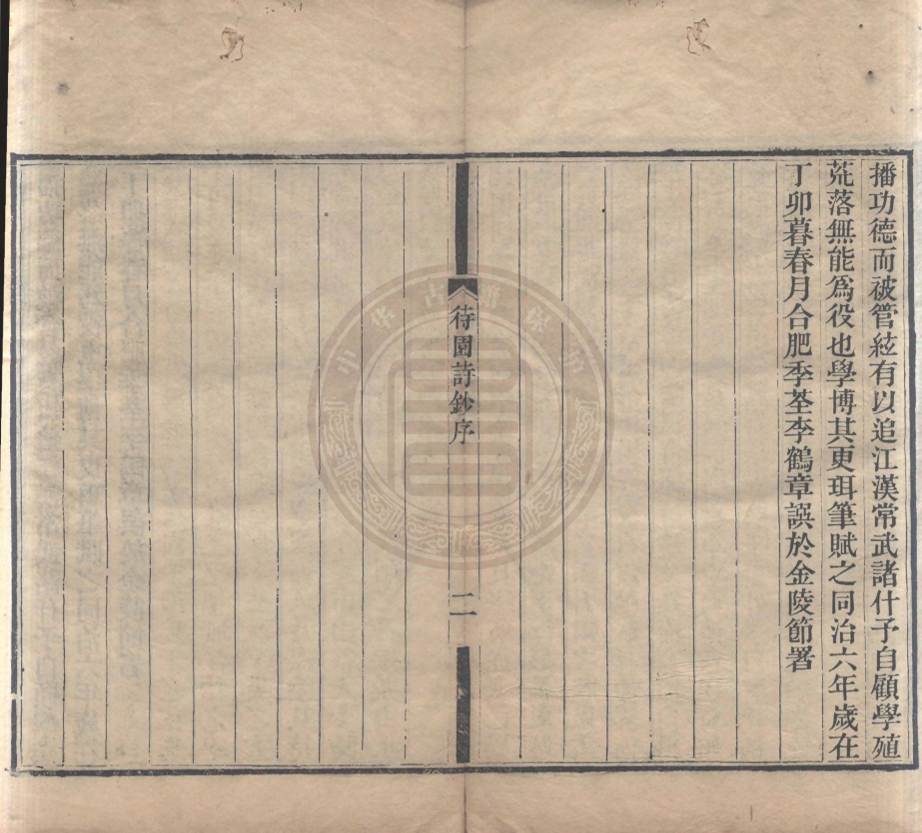 播功德而被管絃有以追江漢常武諸什予自顧學殖
荒落無能爲役也學博其更珥筆賦之同治六年歲在
丁卯暮春月合肥季荃李鶴章譔於金陵節署
待園詩鈔序
二
中华古籍保护